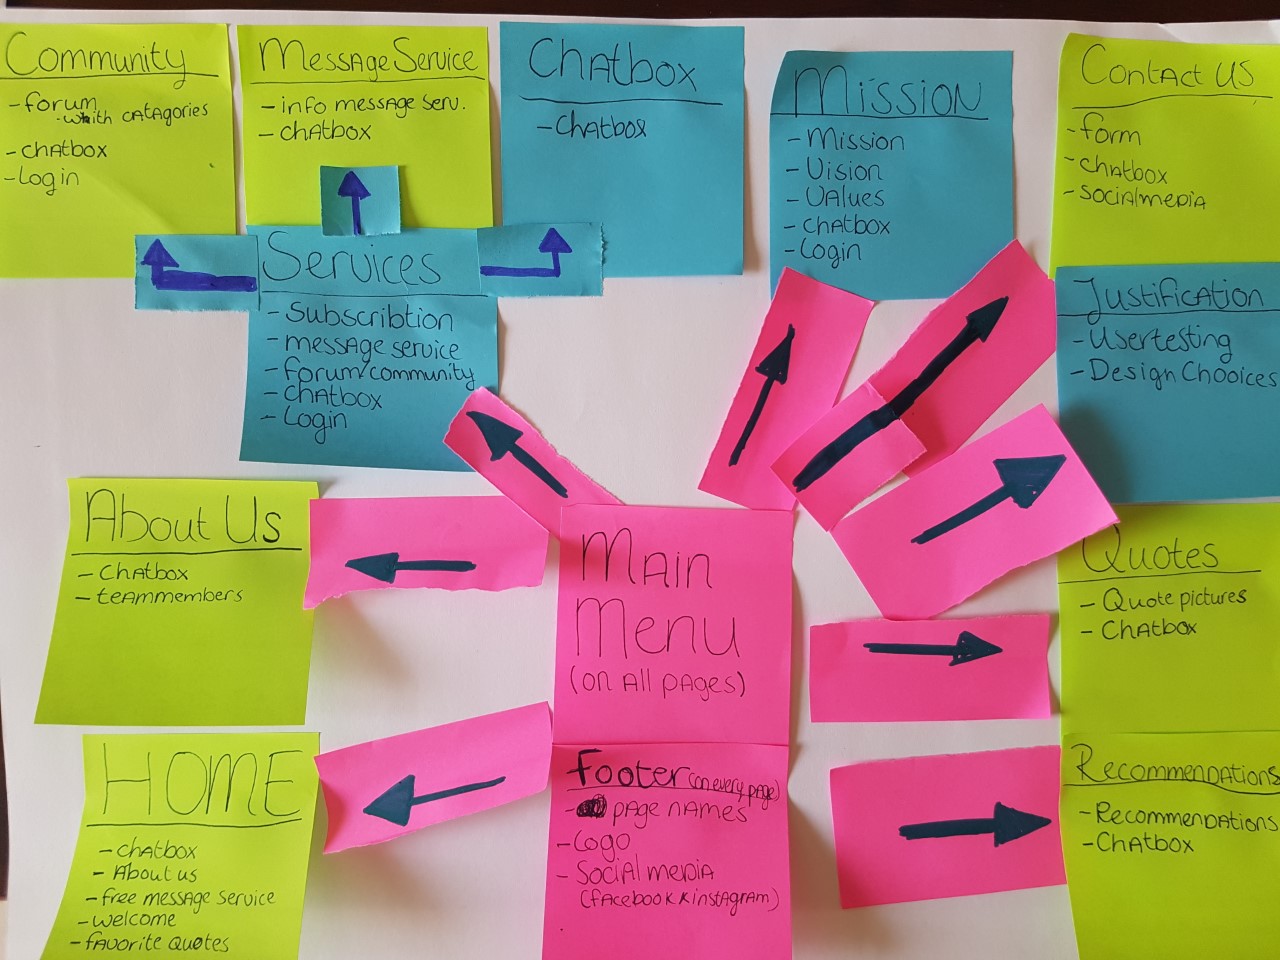 Community
- forum
- with catagories
- chatbox
- Login
Message Service
- info message serv.
- chatbox
Chatbox
- Chatbox
Mission
- Mission
- Vision
- Values
- chatbox
- Login
Contact us
- form
- chatbox
- socialmedia
Services
- Subscribtion
- message service
- forum/community
- chatbox
- Login
Justification
- Usertesting
- Design Chooices
About Us
- Chatbox
- teammembers
Main
Menu
(on all pages)
Quotes
- Quote pictures
- Chatbox
HOME
- chatbox
- About us
- free message service
- welcome
- favorite quotes
Footer (on every page)
- page names
- Logo
- Social media
(facebook & instagram)
Recommendations
- Recommendations
- Chatbox